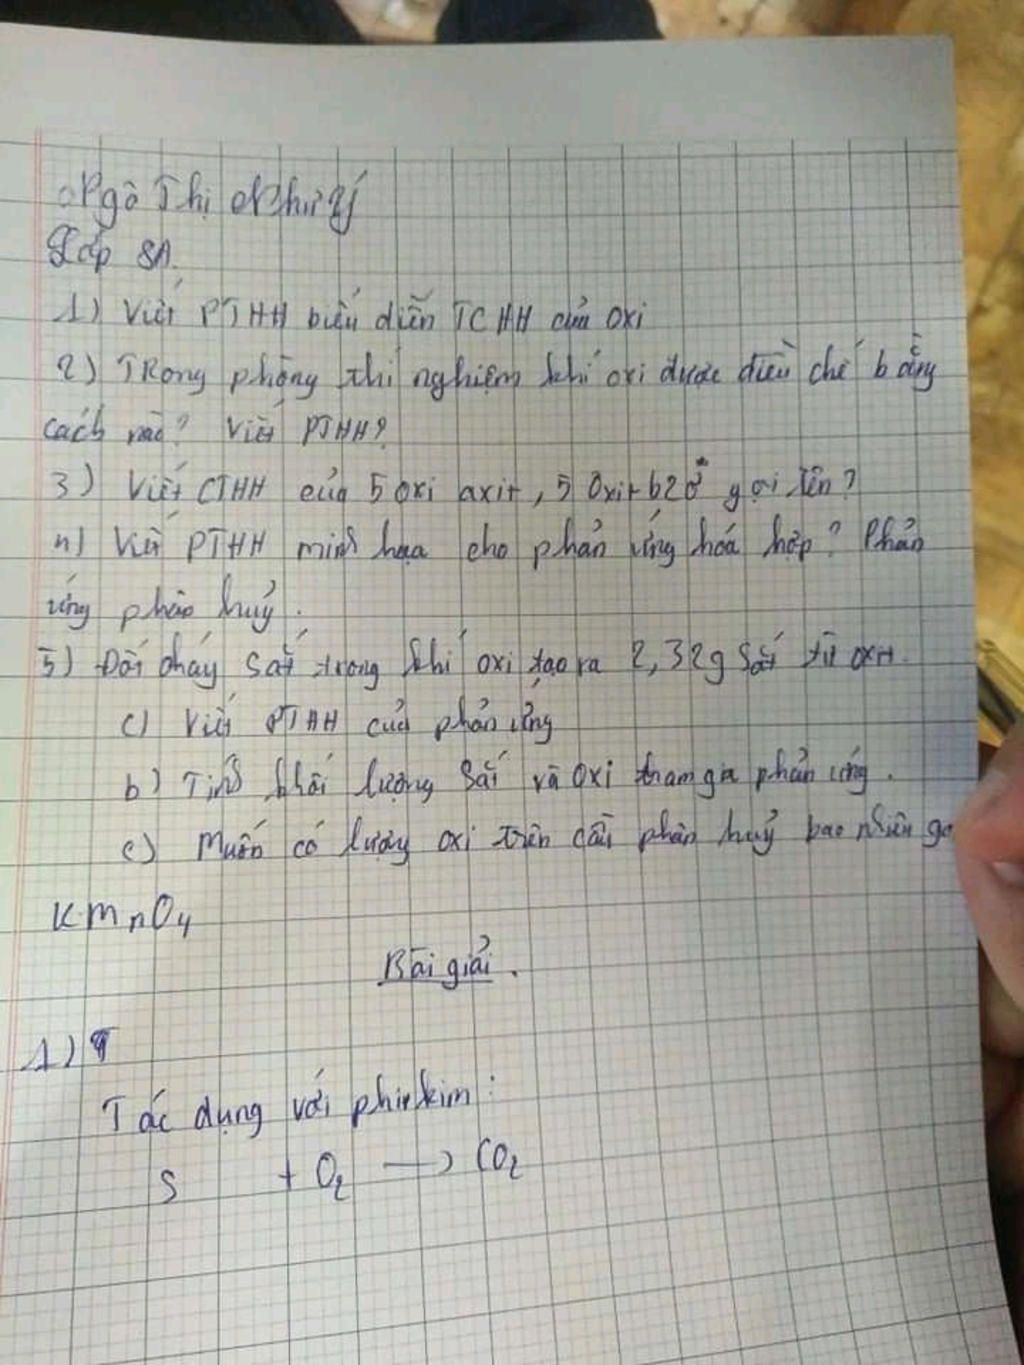 Ngô Thị Như Ý
Lớp 8A.
1) Viết PTHH biểu diễn TCHH của oxi
2) TRong phòng thí nghiệm khí oxi được điều chế bằng
cách nào? Viết PTHH?
3) Viết CTHH của 5 oxi axit, 5 Oxit bazơ gọi tên?
4) Viết PTHH minh họa cho phản ứng hoá hợp? Phản
ứng phân huỷ.
5) Đốt cháy sắt trong khí oxi tạo ra 2,32g sắt từ oxit.
c) Viết PTHH của phản ứng
b) Tính khối lượng sắt và oxi tham gia phản ứng.
c) Muốn có lượng oxi trên cần phân huỷ bao nhiêu ga
KMnO4
Bài giải.
1)
Tác dụng với phi kim:
S + O2 → CO2